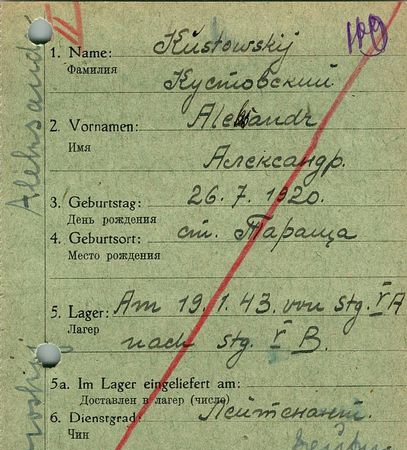 109
1. Name: Kustowskij
Фамилия Кустовский
2. Vornamen: Aleksandr
Имя Александр.
3. Geburtstag: 26. 7. 1920.
День рождения
4. Geburtsort: ст. Тараща
Место рождения
5. Lager: Am 19. 1. 43. von stg. V A
Лагер nach stg. V B.
5a. Im Lager eingeliefert am:
Доставлен в лагер (число)
6. Dienstgrad: Лейтенант.
Чин
Aleksand